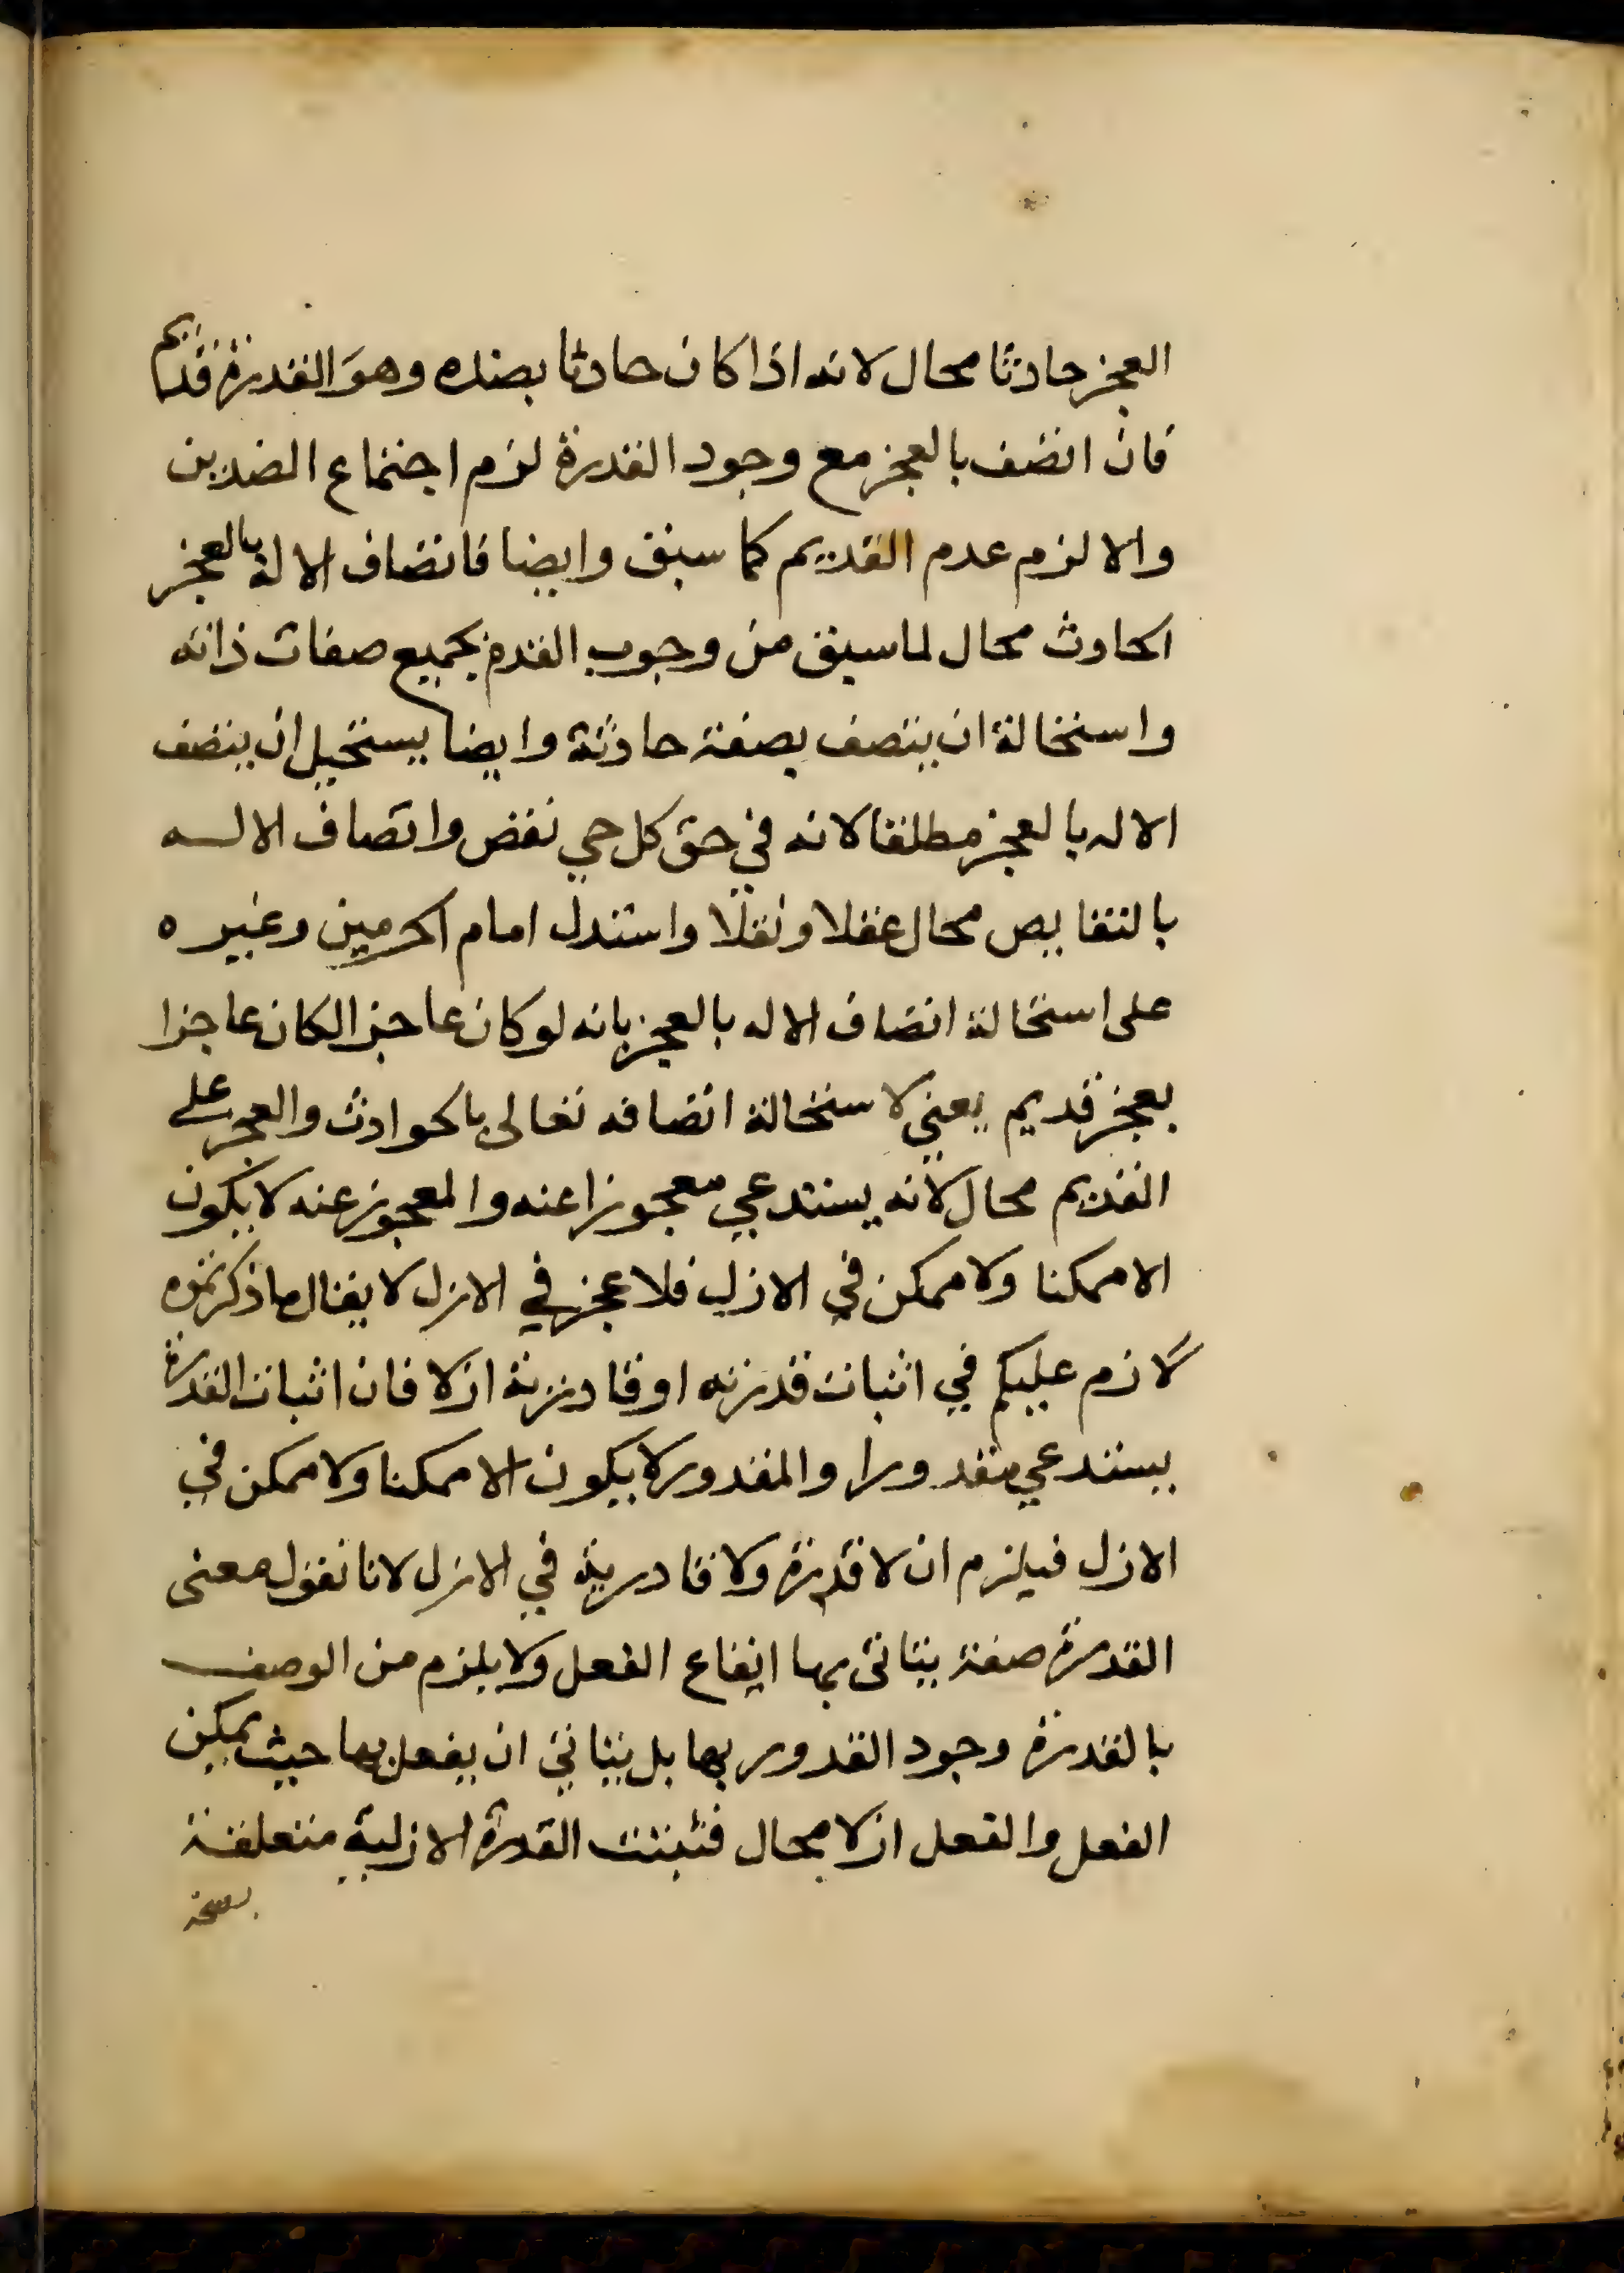 العجز حادثا محال لانه اذا كان حادثا بضده وهو القدرة قديم
فان اتصف بالعجز مع وجود القدرة لزم اجتماع الضدين
والا لزم عدم القديم كما سبق وايضا فاتصاف الاله بالعجز
الحادث محال لما سبق من وجوب القدم بجميع صفات ذاته
واستحالة ان يتصف بصفة حادثة وايضا يستحيل ان يتصف
الاله بالعجز مطلقا لانه في حق كل حي نقص واتصاف الاله
بالنقايص محال عقلا ونقلا واستدل امام الحرمين وغيره
على استحالة اتصاف الاله بالعجز بانه لو كان عاجزا لكان عاجزا
بعجز قديم يعني لاستحالة اتصافه تعالى بالحوادث والعجز على
القديم محال لانه يستدعي معجوزا عنه والمعجوز عنه لا يكون
الا ممكنا ولا ممكن في الازل فلا عجز في الازل لا يقال ما ذكرتموه
لازم عليكم في اثبات قدرته او قادريته ازلا فان اثبات القدرة
يستدعي مقدورا والمقدور لا يكون الا ممكنا ولا ممكن في
الازل فيلزم ان لا قدرة ولا قادرية في الازل لانا نقول معنى
القدرة صفة يتاتى بها ايقاع الفعل ولا يلزم من الوصف
بالقدرة وجود القدور بها بل يتاتى ان يفعل بها حيث يمكن
الفعل والفعل ازلا محال فثبتت القدرة الازلية متعلقة
بصحة